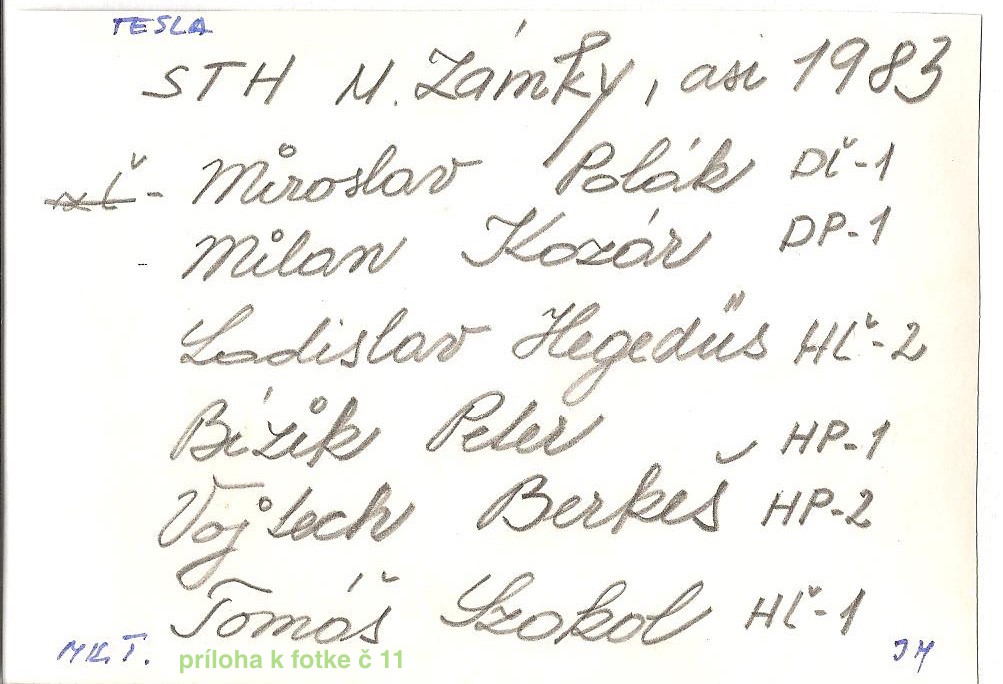 TESLA
STH N. Zámky, asi 1983
Miroslav Polák DĽ-1
Milan Kozár DP-1
Ladislav Hegedüs HĽ-2
Bízik Peter HP-1
Vojtech Berkeš HP-2
Tomáš Szokol HĽ-1
MK.T. príloha k fotke č 11 JM